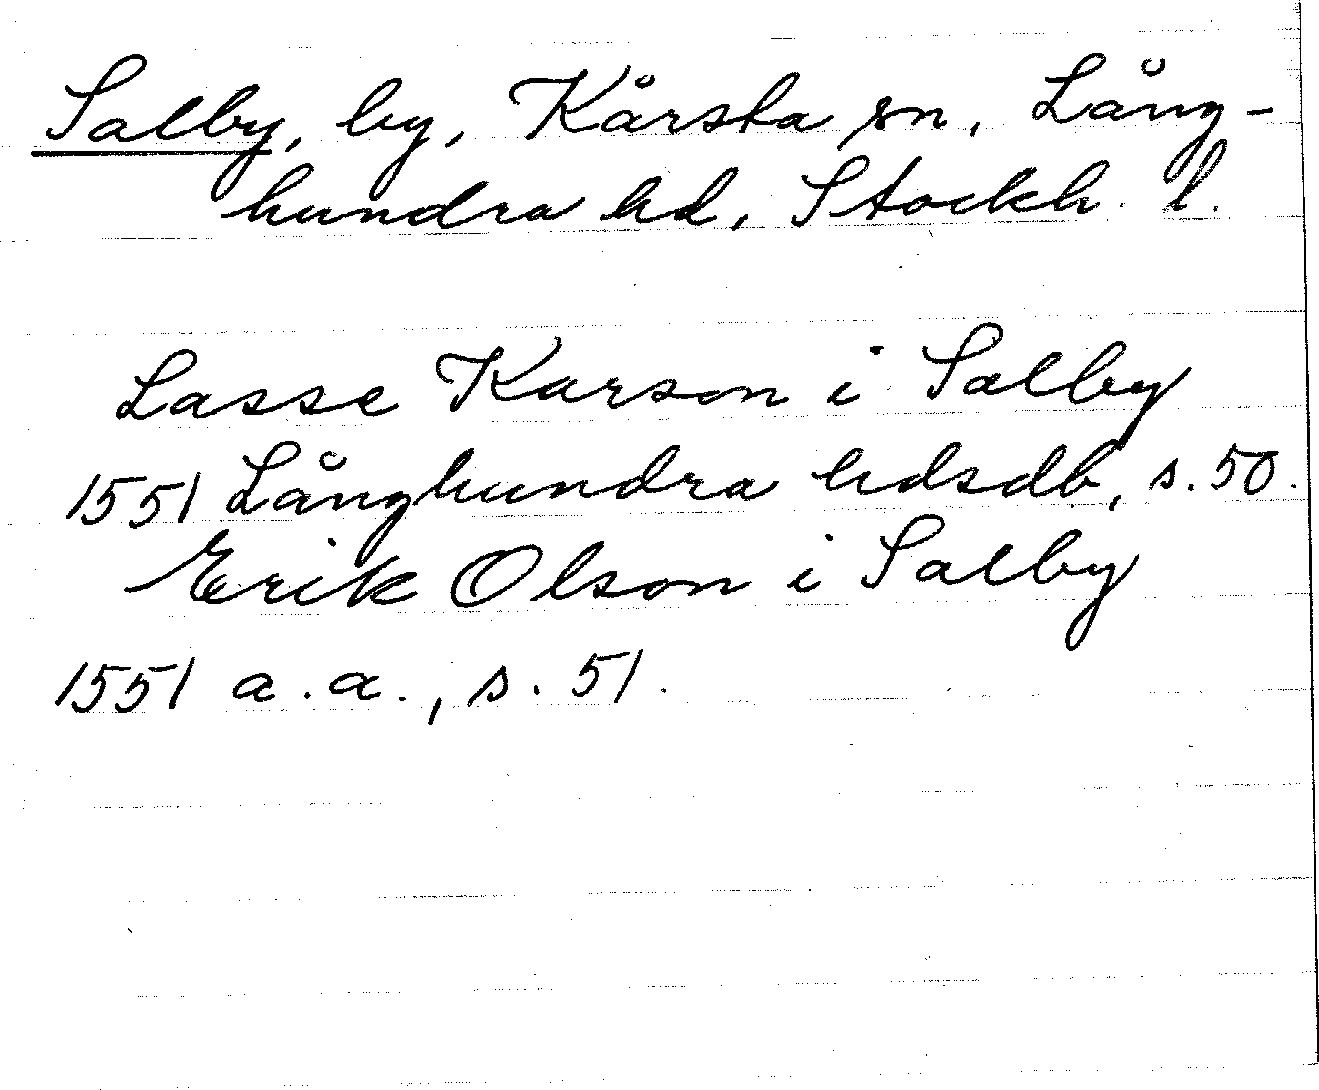 Salby, by, Kårsta sn, Lång-
hundra hd, Stockh. l.
Lasse Karson i Salby
1551 Långhundra hdsdb, s. 50.
Erik Olson i Salby
1551 a.a., s. 51.